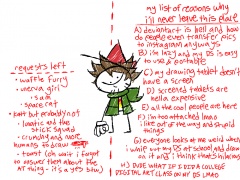 requests left
- waffle furry
- inerva girl
- sam
- space cat
east but probably not
- loatic and the
stick squad
- crunchy and more
humans as draw
- toast (oh wait i forgot
to answer them about the
AT thing. it's a yes btw)
my list of reasons why
i'll never leave this place
A) deviantart is hell and how
do people even transfer pics
to instagram anyways
B) i'm lazy and my DS is easy
to use & portable
C) my drawing tablet doesn't
have a screen
D) screened tablets are
hella expensive
E) all the cool people are here
F) i'm too attached lmao
like out of the way and stupid
things
G) everyone looks at me weird when
i whip out my DS at school and draw
on it and i think that's hilarious
H) DUDE WHAT IF I DID A COLLEGE
DIGITAL ART CLASS ON MY DS LMAO